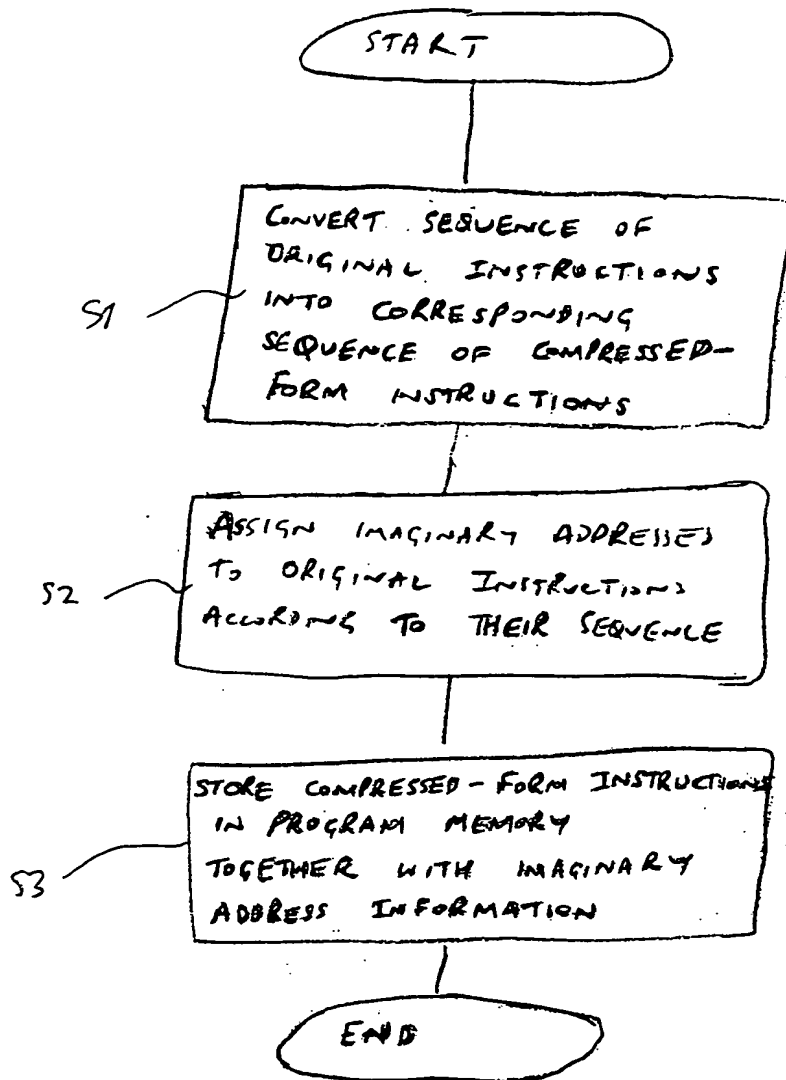 START
S1
CONVERT SEQUENCE OF
ORIGINAL INSTRUCTIONS
INTO CORRESPONDING
SEQUENCE OF COMPRESSED-
FORM INSTRUCTIONS
S2
ASSIGN IMAGINARY ADDRESSES
TO ORIGINAL INSTRUCTIONS
ACCORDING TO THEIR SEQUENCE
S3
STORE COMPRESSED-FORM INSTRUCTIONS
IN PROGRAM MEMORY
TOGETHER WITH IMAGINARY
ADDRESS INFORMATION
END